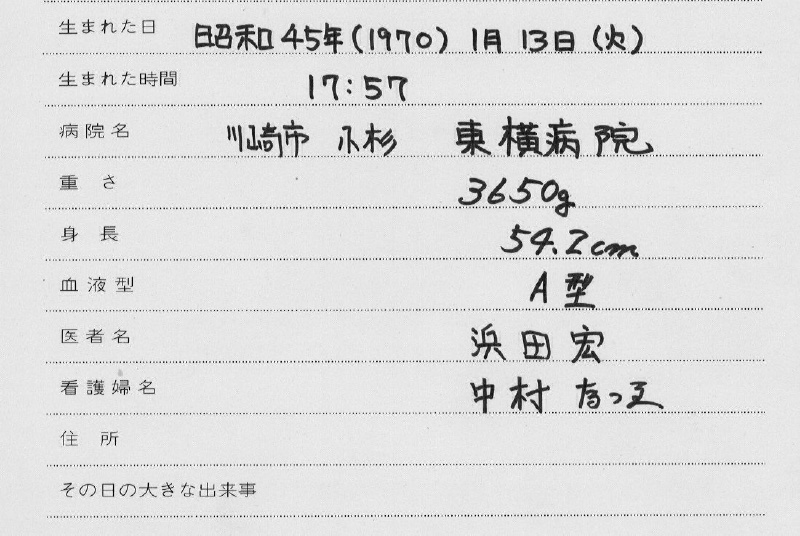 生まれた日 昭和45年(1970) 1月13日(火)
生まれた時間 17:57
病院名 川崎市 小杉 東横病院
重さ 3650g
身長 54.2cm
血液型 A型
医者名 浜田宏
看護婦名 中村
住所
その日の大きな出来事